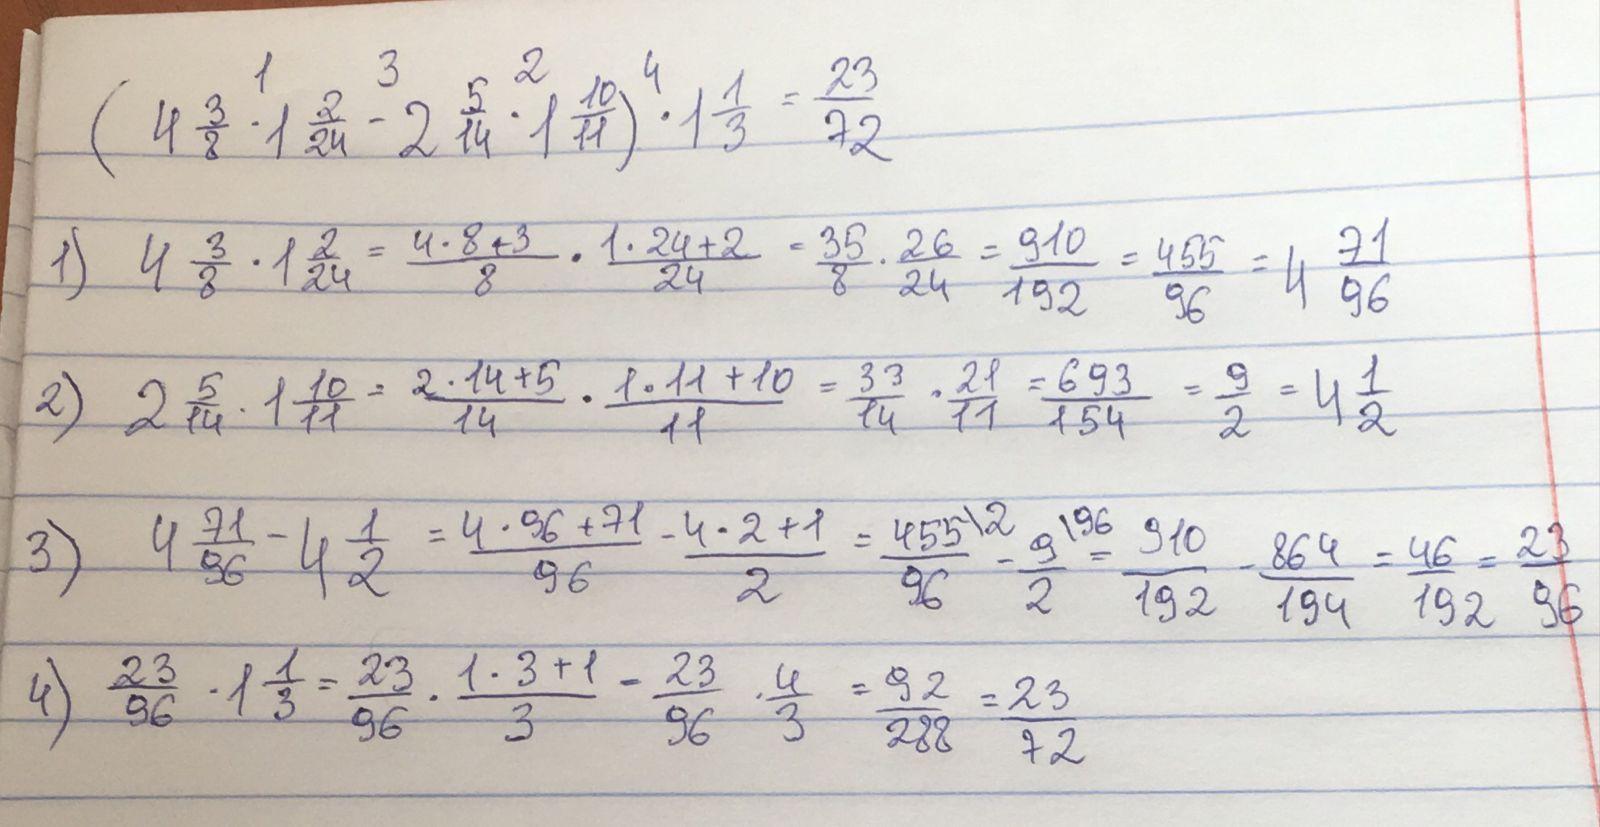 (4 3/8 · 1 2/24 - 2 5/14 · 1 10/11) · 1 1/3 = 23/72
1 3 2 4
1) 4 3/8 · 1 2/24 = (4·8+3)/8 · (1·24+2)/24 = 35/8 · 26/24 = 910/192 = 455/96 = 4 71/96
2) 2 5/14 · 1 10/11 = (2·14+5)/14 · (1·11+10)/11 = 33/14 · 21/11 = 693/154 = 9/2 = 4 1/2
3) 4 71/96 - 4 1/2 = (4·96+71)/96 - (4·2+1)/2 = 455\2/96 - 9\96/2 = 910/192 - 864/194 = 46/192 = 23/96
4) 23/96 · 1 1/3 = 23/96 · (1·3+1)/3 = 23/96 · 4/3 = 92/288 = 23/72